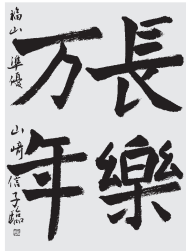 長樂
万年
福山 準優
山崎信子臨